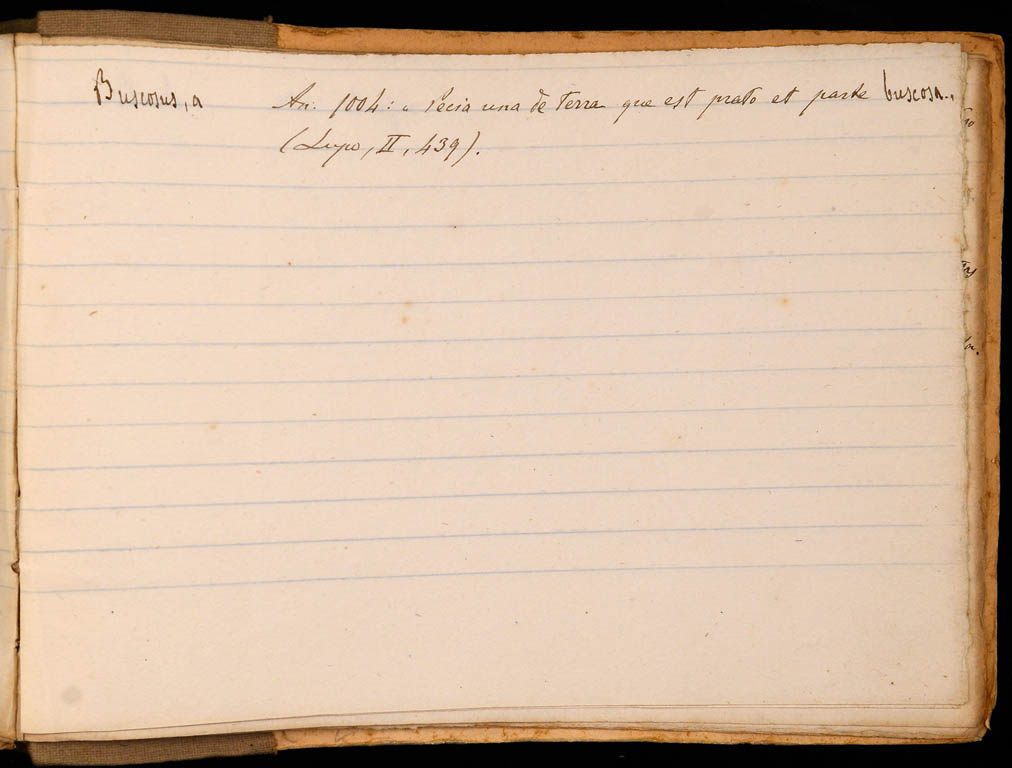 Buscosus, a An. 1004: « pecia una de terra que est prato et parte buscosa »
(Lupo, II, 439).